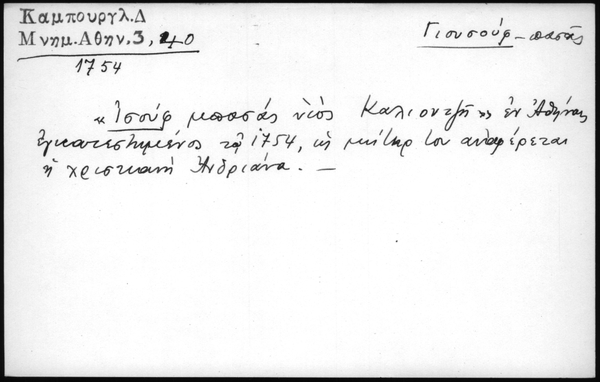 Καμπουργλ.Δ
Μνημ.Αθην,3, 40
1754
Γιουσούφ - πασᾶς
« Ἰσούφ μπασάς υἱὸς Καλιοντζῆ » ἐν Ἀθήναις
ἐγκατεστημένος τῷ 1754, ὡς μήτηρ του ἀναφέρεται
ἡ χριστιανή Ἀνδριάνα. —